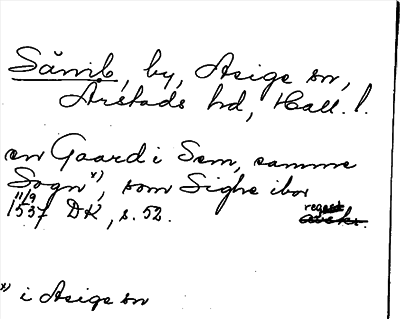 Sännb, by, Asige sn,
Årstads hd, Hall. l.
en Gaard i Sem, samme
Sogn x), som Sighe ibor
11/9
1537 DK, s. 52. regest
x) i Asige sn